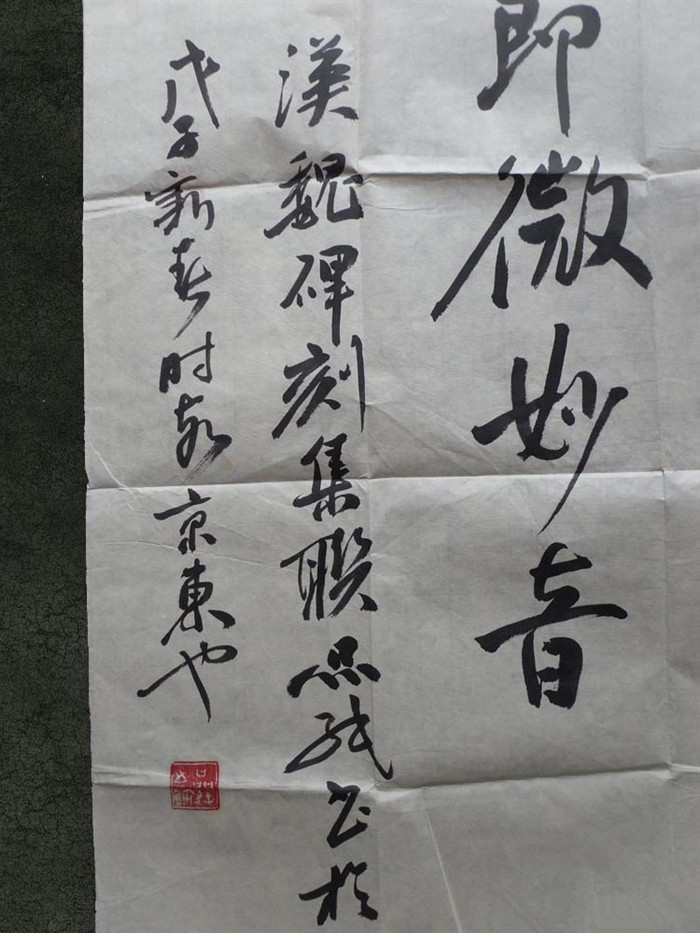 即微妙音
漢魏碑刻集聯 书於
戊子新春时 京東也